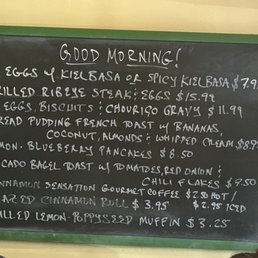 GOOD MORNING!
EGGS w/ KIELBASA OR SPICY KIELBASA $7.9
RILLED RIBEYE STEAK & EGGS $15.99
EGGS, BISCUITS & CHOURIGO GRAVY $11.99
READ PUDDING FRENCH TOAST w/ BANANAS,
COCONUT, ALMONDS & WHIPPED CREAM $8.9
MON-BLUEBERRY PANCAKES $8.50
CADO BAGEL TOAST w/ TOMATOES, RED ONION &
CHILI FLAKES $9.50
NNAMON SENSATION GOURMET COFFEE $2.50 HOT/
AZED CINNAMON ROLL $3.95 $2.95 ICED
ILLED LEMON-POPPYSEED MUFFIN $3.25